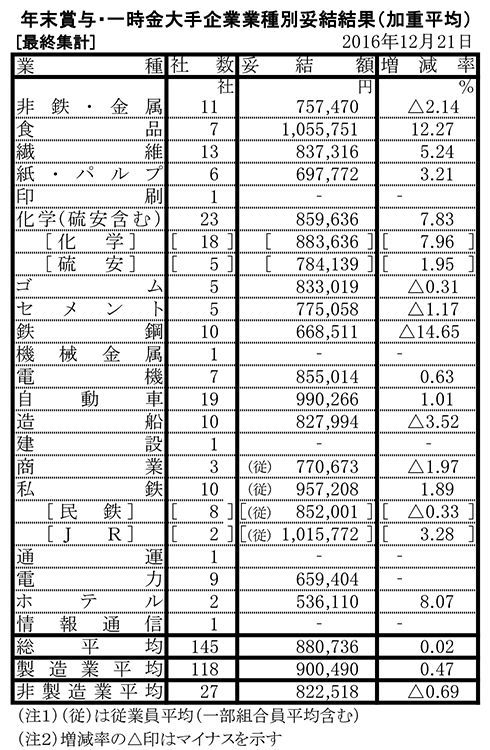 年末賞与・一時金大手企業業種別妥結結果（加重平均）
[最終集計] 2016年12月21日
業種 社数 妥結額 増減率
社 円 %
非鉄・金属 11 757,470 △2.14
食品 7 1,055,751 12.27
繊維 13 837,316 5.24
紙・パルプ 6 697,772 3.21
印刷 1 - -
化学(硫安含む) 23 859,636 7.83
[化学] [ 18 ] [ 883,636 ] [ 7.96 ]
[硫安] [ 5 ] [ 784,139 ] [ 1.95 ]
ゴム 5 833,019 △0.31
セメント 5 775,058 △1.17
鉄鋼 10 668,511 △14.65
機械金属 1 - -
電機 7 855,014 0.63
自動車 19 990,266 1.01
造船 10 827,994 △3.52
建設 1 - -
商業 3 (従) 770,673 △1.97
私鉄 10 (従) 957,208 1.89
[民鉄] [ 8 ] [(従) 852,001 ] [ △0.33 ]
[JR] [ 2 ] [(従) 1,015,772 ] [ 3.28 ]
通運 1 - -
電力 9 659,404 -
ホテル 2 536,110 8.07
情報通信 1 - -
総平均 145 880,736 0.02
製造業平均 118 900,490 0.47
非製造業平均 27 822,518 △0.69
(注1) (従)は従業員平均(一部組合員平均含む)
(注2) 増減率の△印はマイナスを示す